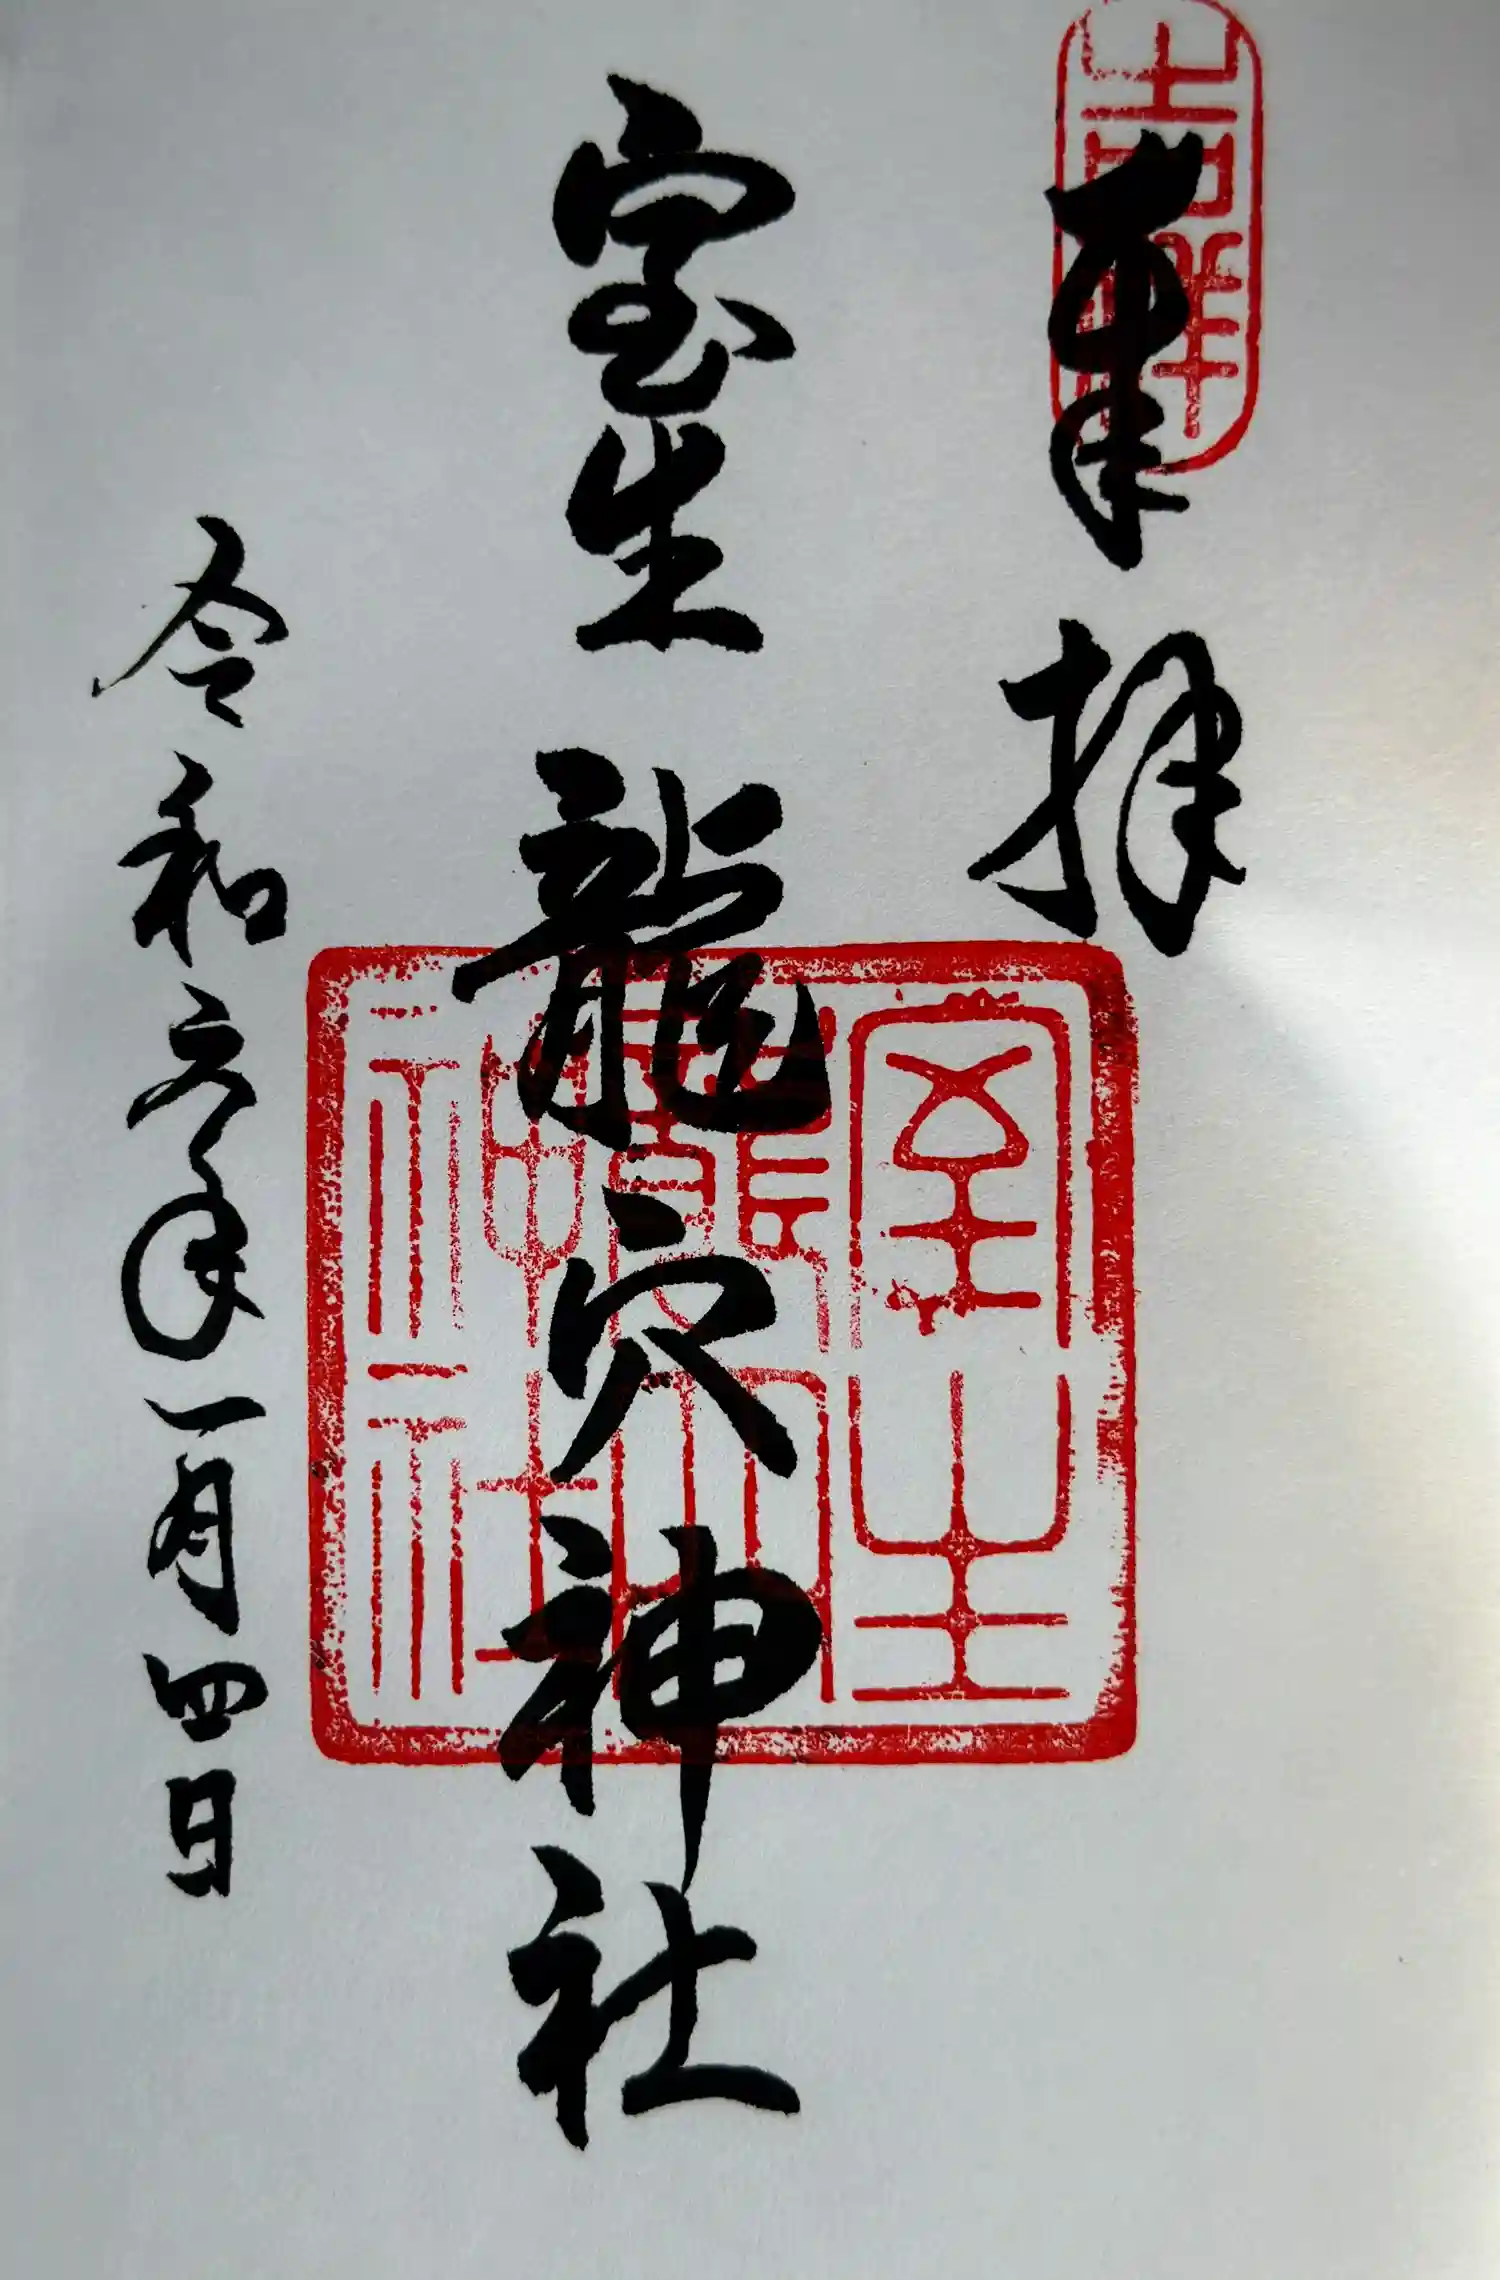 吉祥
奉拝
室生龍穴神社
室生
龍穴
神社
令和六年一月四日